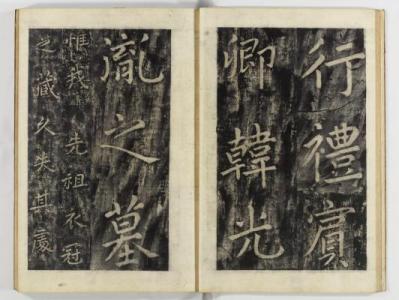 行禮賓
卿韓光
胤之墓
惟我先祖衣冠
之藏久失其處